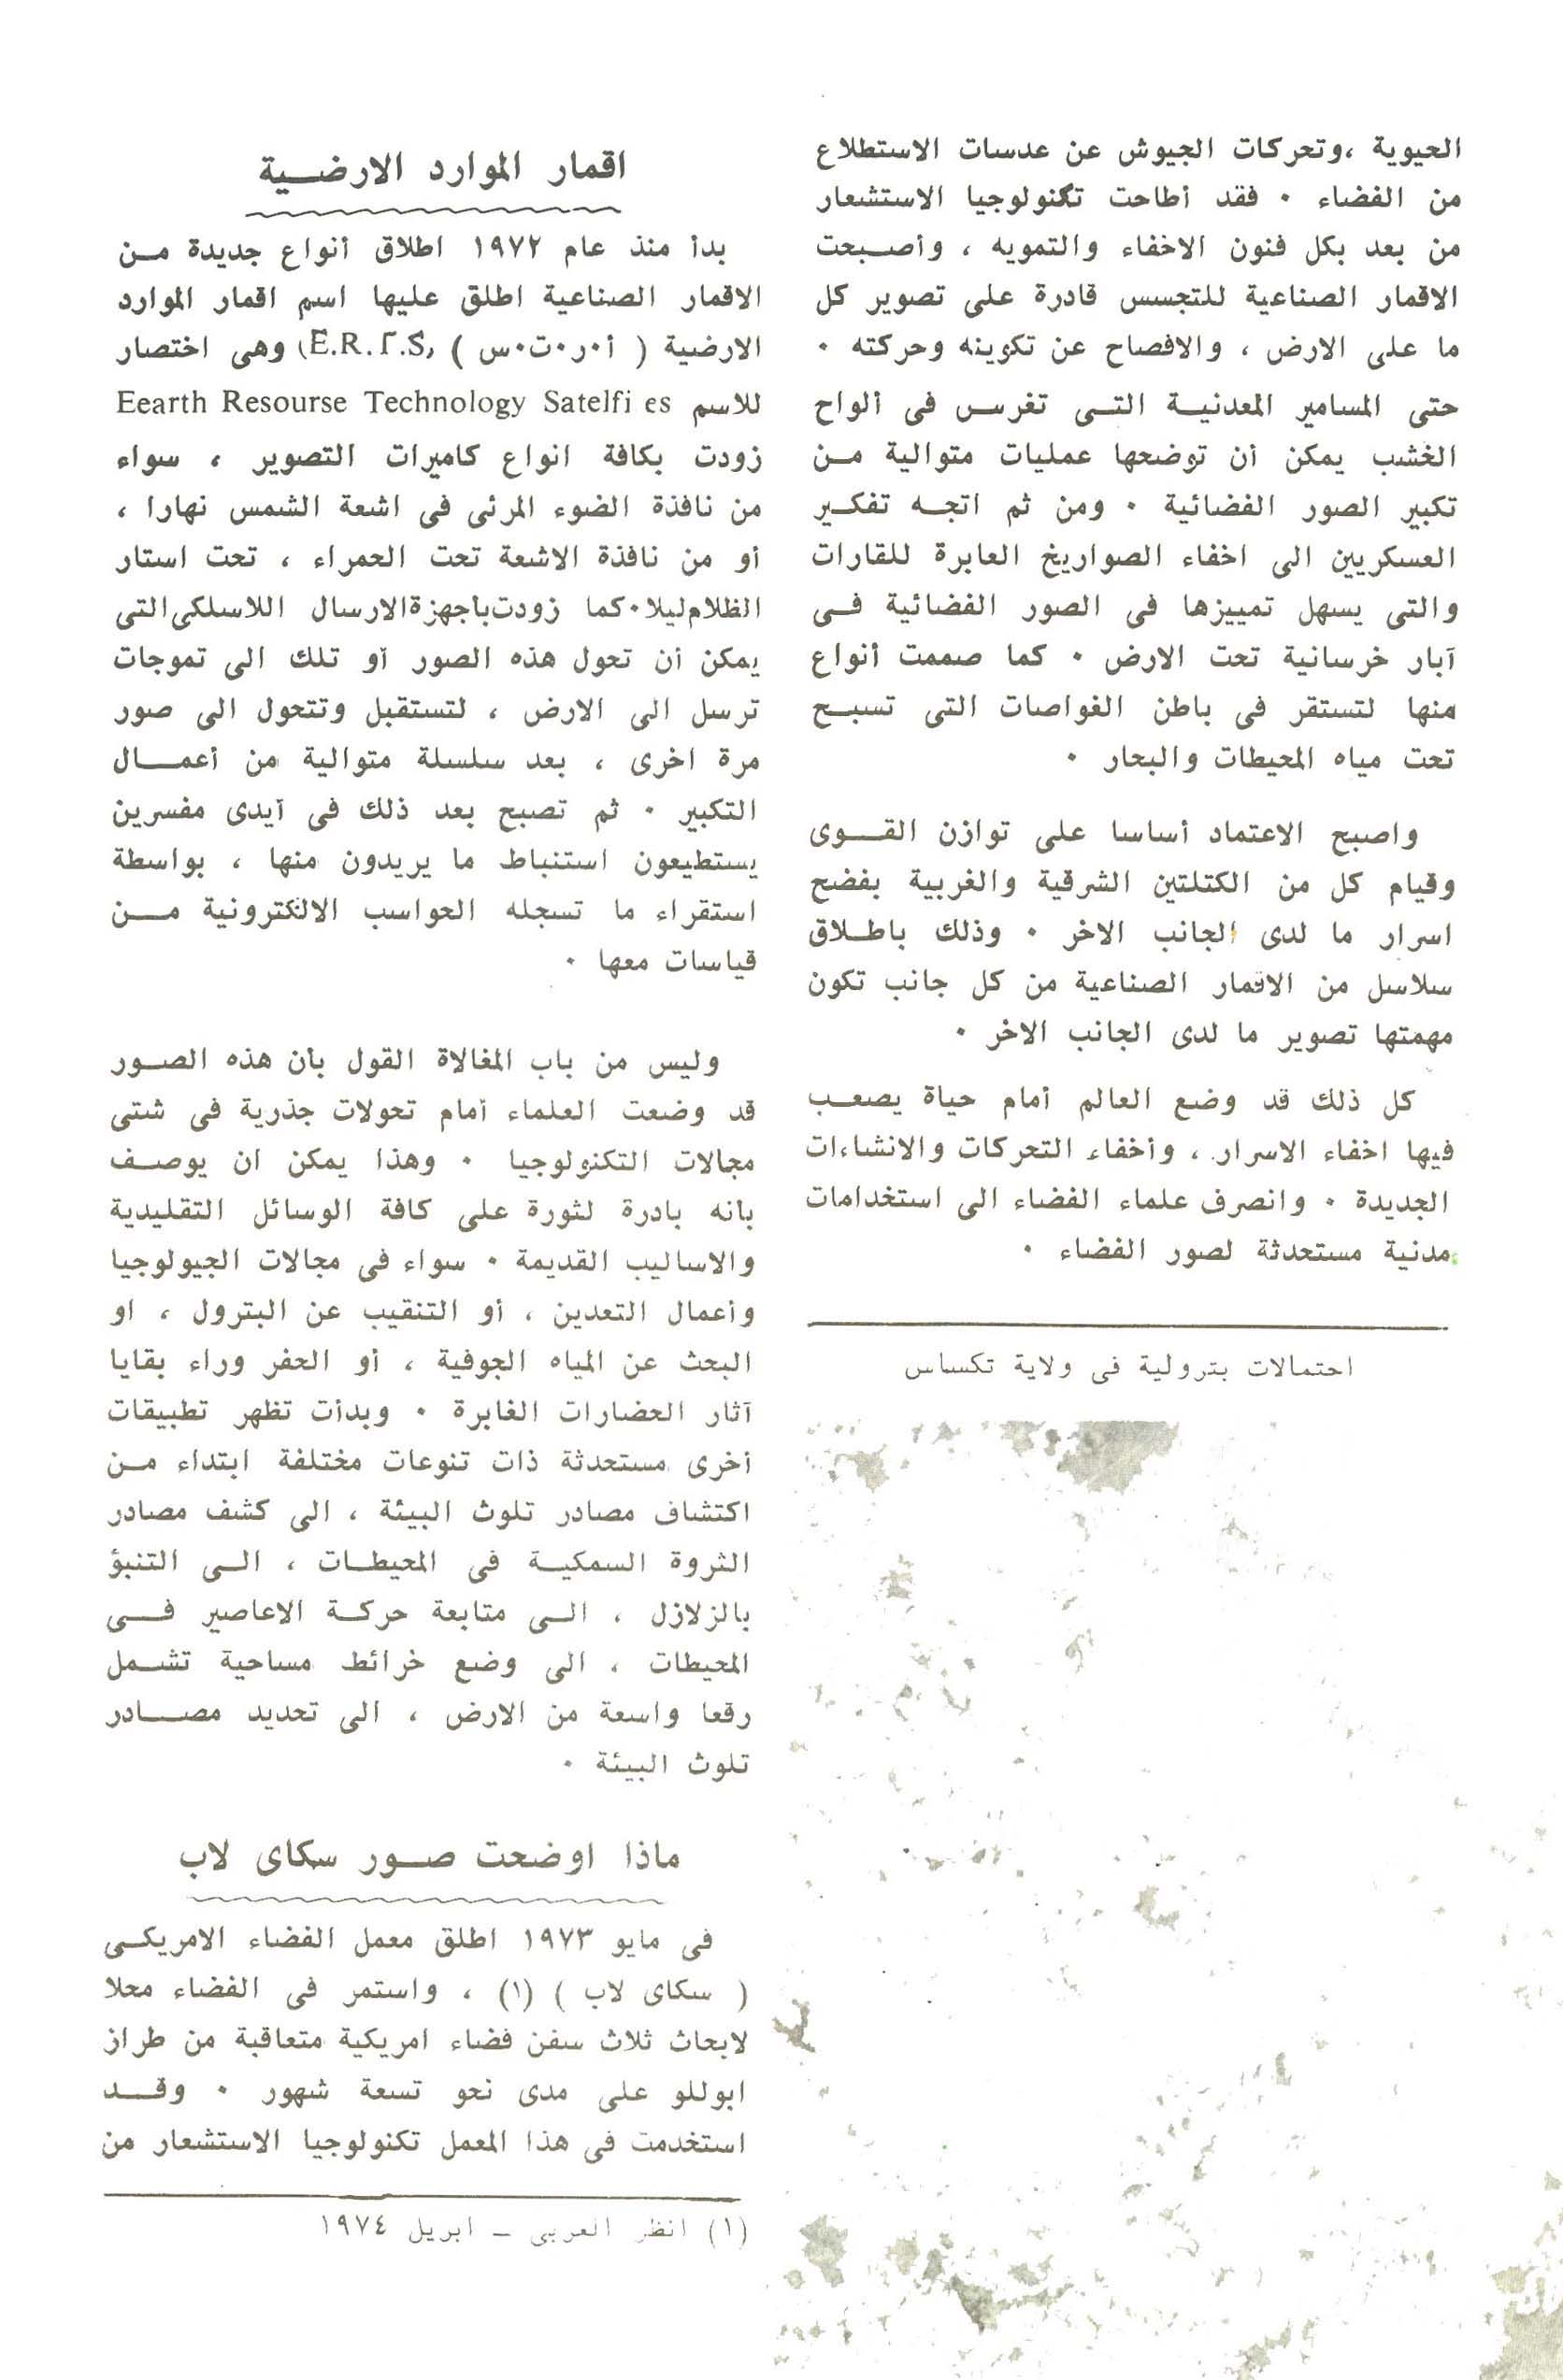 الحيوية ،وتحركات الجيوش عن عدسات الاستطلاع
من الفضاء ٠ فقد أطاحت تكنولوجيا الاستشعار
من بعد بكل فنون الاخفاء والتمويه ، وأصـبحت
الاقمار الصناعية للتجسس قادرة على تصوير كل
ما على الارض ، والافصاح عن تكوينه وحركته ٠
حتى المسامير المعدنيـة التـى تغرس فى ألواح
الخشب يمكن أن توضحها عمليات متوالية مـن
تكبير الصور الفضائية ٠ ومن ثم اتجـه تفكـير
العسكريين الى اخفاء الصواريخ العابرة للقارات
والتى يسهل تمييزها فى الصور الفضائية فـى
آبار خرسانية تحت الارض ٠ كما صممت أنواع
منها لتستقر فى باطن الغواصات التى تسبـح
تحت مياه المحيطات والبحار ٠
واصبح الاعتماد أساسا على توازن القـوى
وقيام كل من الكتلتين الشرقية والغربية بفضح
اسرار ما لدى الجانب الاخر ٠ وذلك باطـلاق
سلاسل من الاقمار الصناعية من كل جانب تكون
مهمتها تصوير ما لدى الجانب الاخر ٠
كل ذلك قد وضع العالم أمام حياة يصعـب
فيها اخفاء الاسرار ، وأخفاء التحركات والانشاءات
الجديدة ٠ وانصرف علماء الفضاء الى استخدامات
مدنية مستحدثة لصور الفضاء ٠
احتمالات بترولية فى ولاية تكساس
اقمار الموارد الارضـية
بدأ منذ عام ١٩٧٢ اطلاق أنواع جديدة مـن
الاقمار الصناعية اطلق عليها اسم اقمار الموارد
الارضية ( أ٠ر٠ت٠س ) (E.R.T.S) وهى اختصار
للاسم Eearth Resourse Technology Satelfi es
زودت بكافة انواع كاميرات التصوير ، سواء
من نافذة الضوء المرئى فى اشعة الشمس نهارا ،
أو من نافذة الاشعة تحت الحمراء ، تحت استار
الظلام ليلا٠كما زودت باجهزةالارسال اللاسلكى التى
يمكن أن تحول هذه الصور أو تلك الى تموجات
ترسل الى الارض ، لتستقبل وتتحول الى صور
مرة اخرى ، بعد سلسلة متوالية من أعمـال
التكبير ٠ ثم تصبح بعد ذلك فى أيدى مفسرين
يستطيعون استنباط ما يريدون منها ، بواسطة
استقراء ما تسجله الحواسب الالكترونية مـن
قياسات معها ٠
وليس من باب المغالاة القول بأن هذه الصـور
قد وضعت العلماء أمام تحولات جذرية فى شتى
مجالات التكنولوجيا ٠ وهذا يمكن ان يوصـف
بانه بادرة لثورة على كافة الوسائل التقليدية
والاساليب القديمة ٠ سواء فى مجالات الجيولوجيا
وأعمال التعدين ، أو التنقيب عن البترول ، او
البحث عن المياه الجوفية ، أو الحفر وراء بقايا
آثار الحضارات الغابرة ٠ وبدأت تظهر تطبيقات
أخرى مستحدثة ذات تنوعات مختلفة ابتداء مـن
اكتشاف مصادر تلوث البيئة ، الى كشف مصادر
الثروة السمكيـة فى المحيطـات ، الـى التنبؤ
بالزلازل ، الـى متابعة حركـة الاعاصير فـى
المحيطات ، الى وضع خرائط مساحية تشـمل
رقعا واسعة من الارض ، الى تحديد مصـادر
تلوث البيئة ٠
ماذا اوضحت صـور سكاى لاب
فى مايو ١٩٧٣ اطلق معمل الفضاء الامريكـى
( سكاى لاب ) (١) ، واستمر فى الفضاء محلا
لابحاث ثلاث سفن فضاء امريكية متعاقبة من طراز
ابوللو على مدى نحو تسعة شهور ٠ وقـد
استخدمت فى هذا المعمل تكنولوجيا الاستشعار من
(١) انظر العربى – ابريل ١٩٧٤